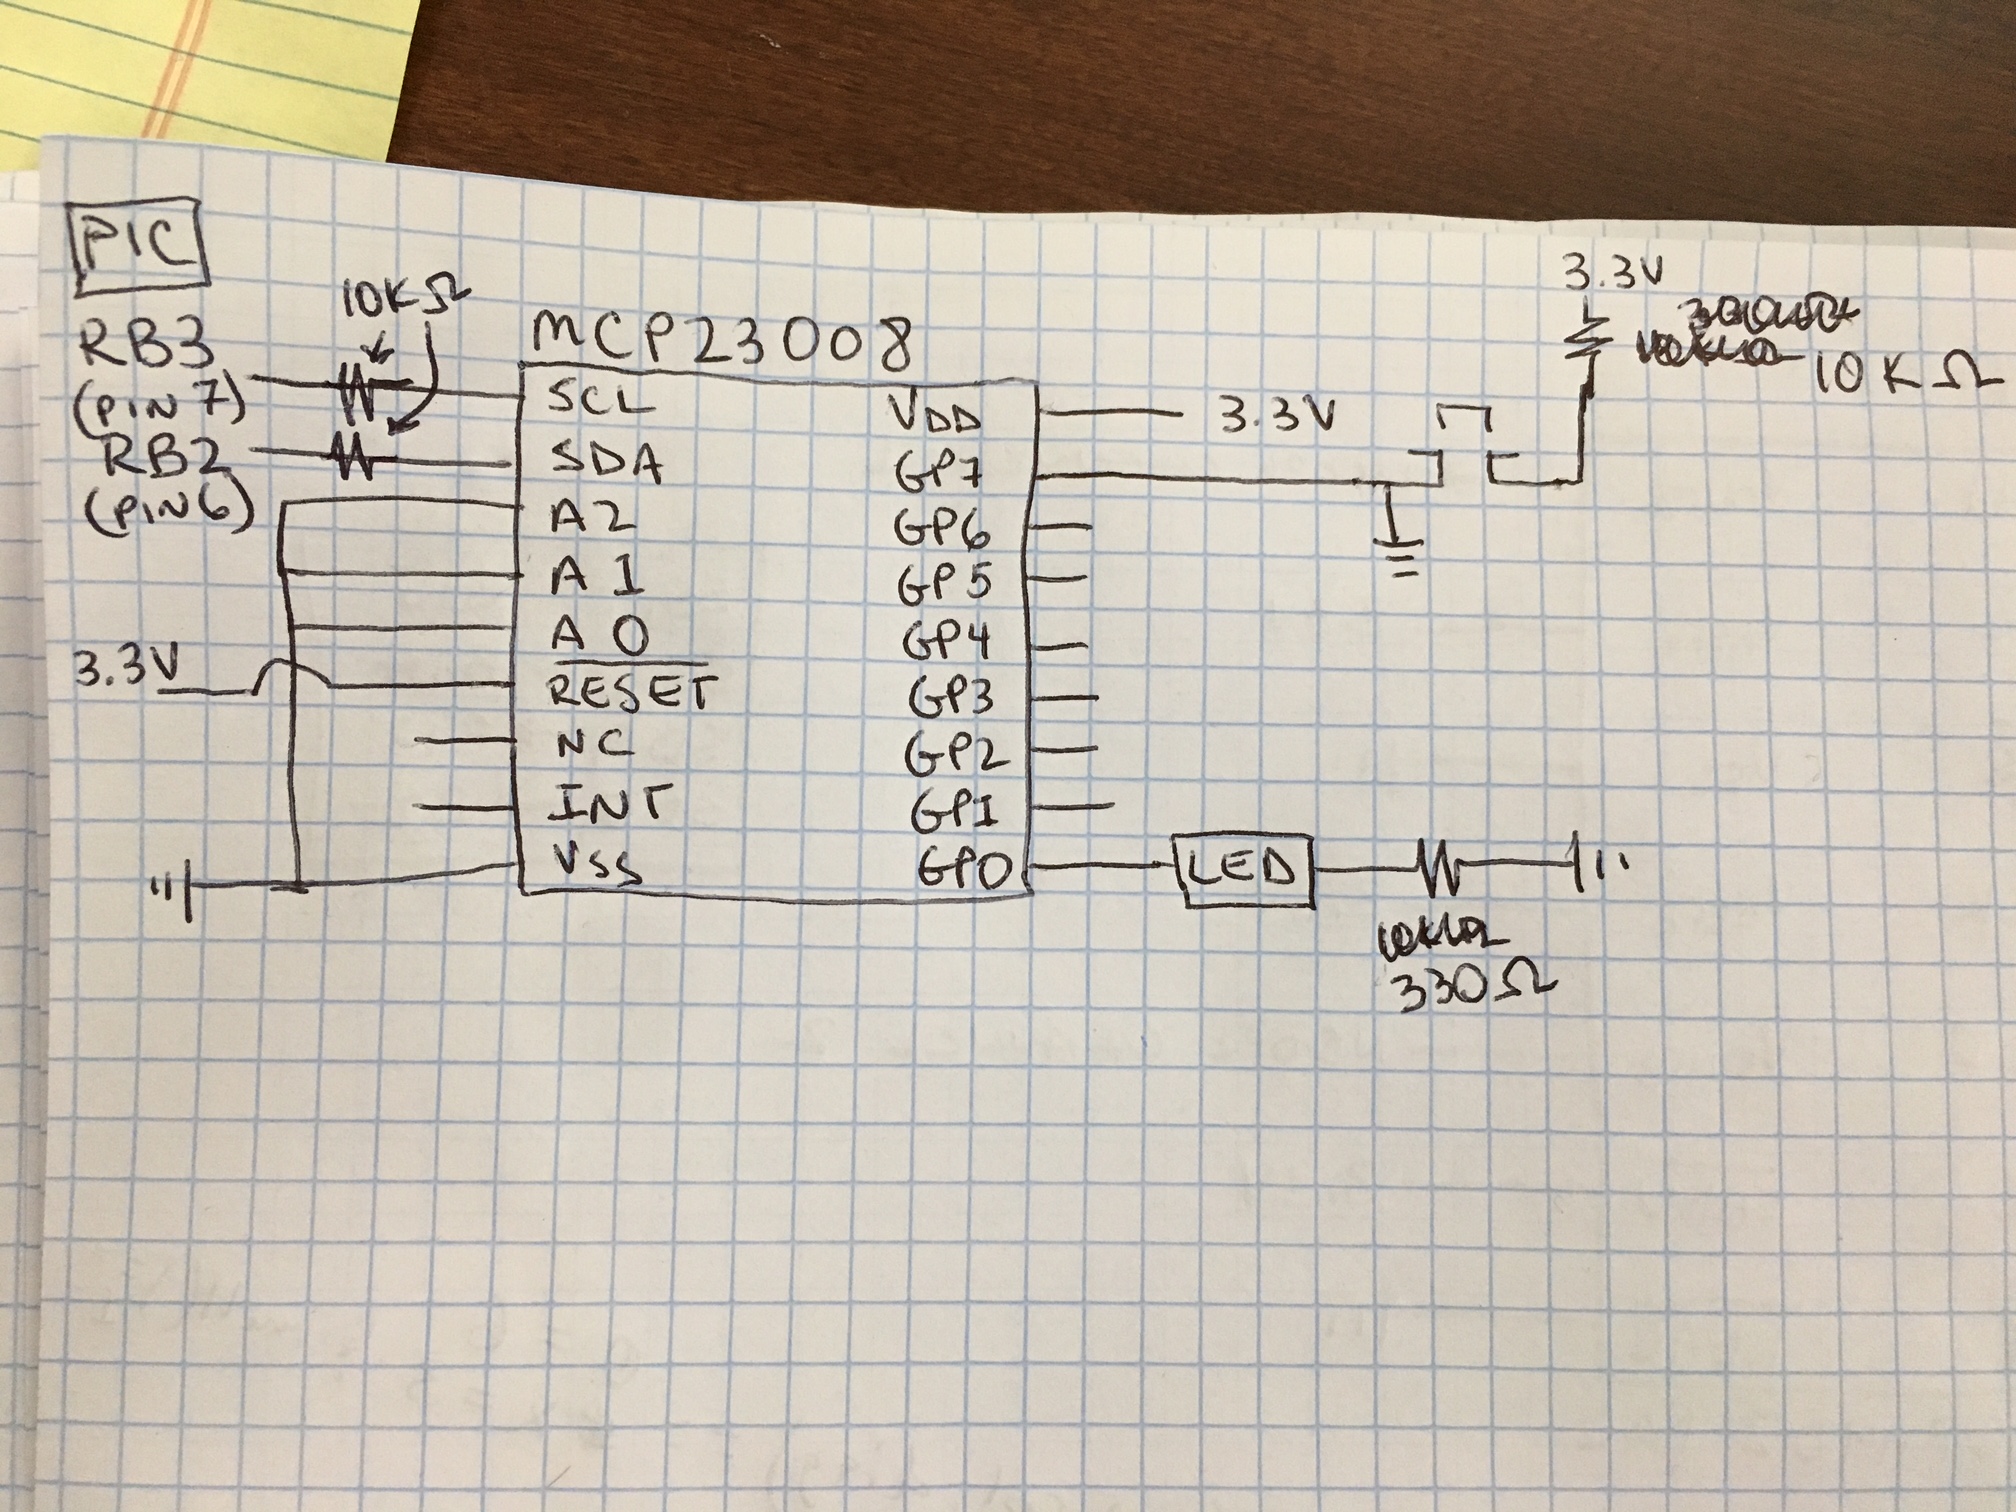 PIC
10KΩ
RB3
(PIN 7)
RB2
(PIN 6)
3.3V
MCP23008
SCL
SDA
A2
A1
A0
RESET
NC
INT
VSS
VDD
GP7
GP6
GP5
GP4
GP3
GP2
GP1
GP0
3.3V
3.3V
10KΩ
LED
330Ω